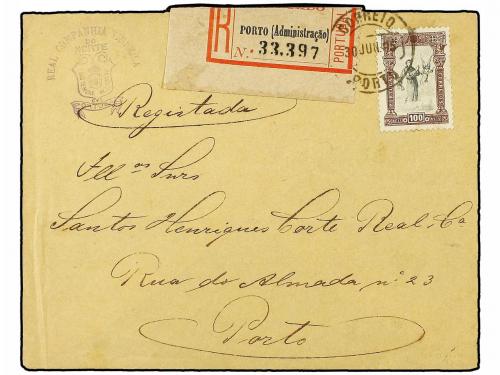 REAL COMPANHIA VINICOLA
DO
NORTE
DE
PORTUGAL
R
PORTO (Administração)
N.º 33.397
PORTO
CORREIO
30 JUN 95
PORTO
100
Registada
Ill.mos Snrs
Santos Henriques Corte Real, & Ca
Rua do Almada nº 23
Porto